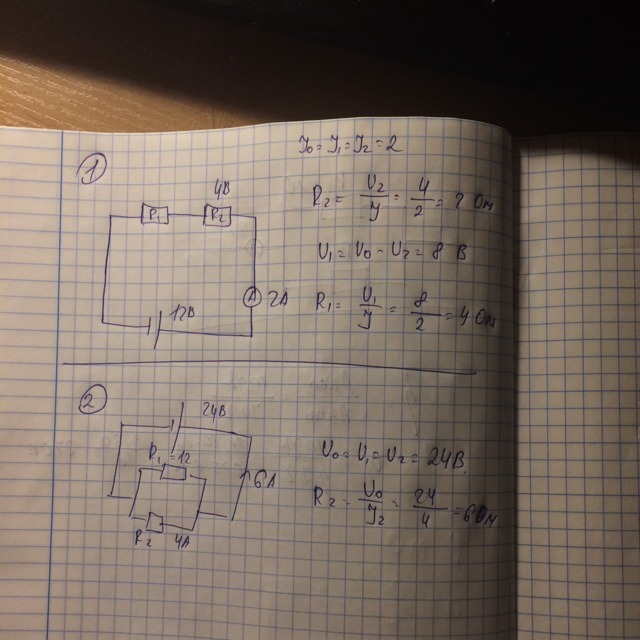 1
У₀ = У₁ = У₂ = 2
4В
R₁ R₂
R₂ = U₂/У = 4/2 = 2 Ом
U₁ = U₀ - U₂ = 8 В
A 2А
12В
R₁ = U₁/У = 8/2 = 4 Ом
2
24В
R₁ = 12
6А
U₀ = U₁ = U₂ = 24В.
R₂ = U₀/У₂ = 24/4 = 6 Ом
R₂ 4А